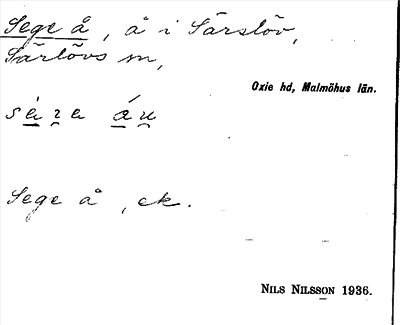 Sege å, å i Särslöv,
Särlövs sn,
Oxie hd, Malmöhus län.
Sege å, ek.
NILS NILSSON 1936.